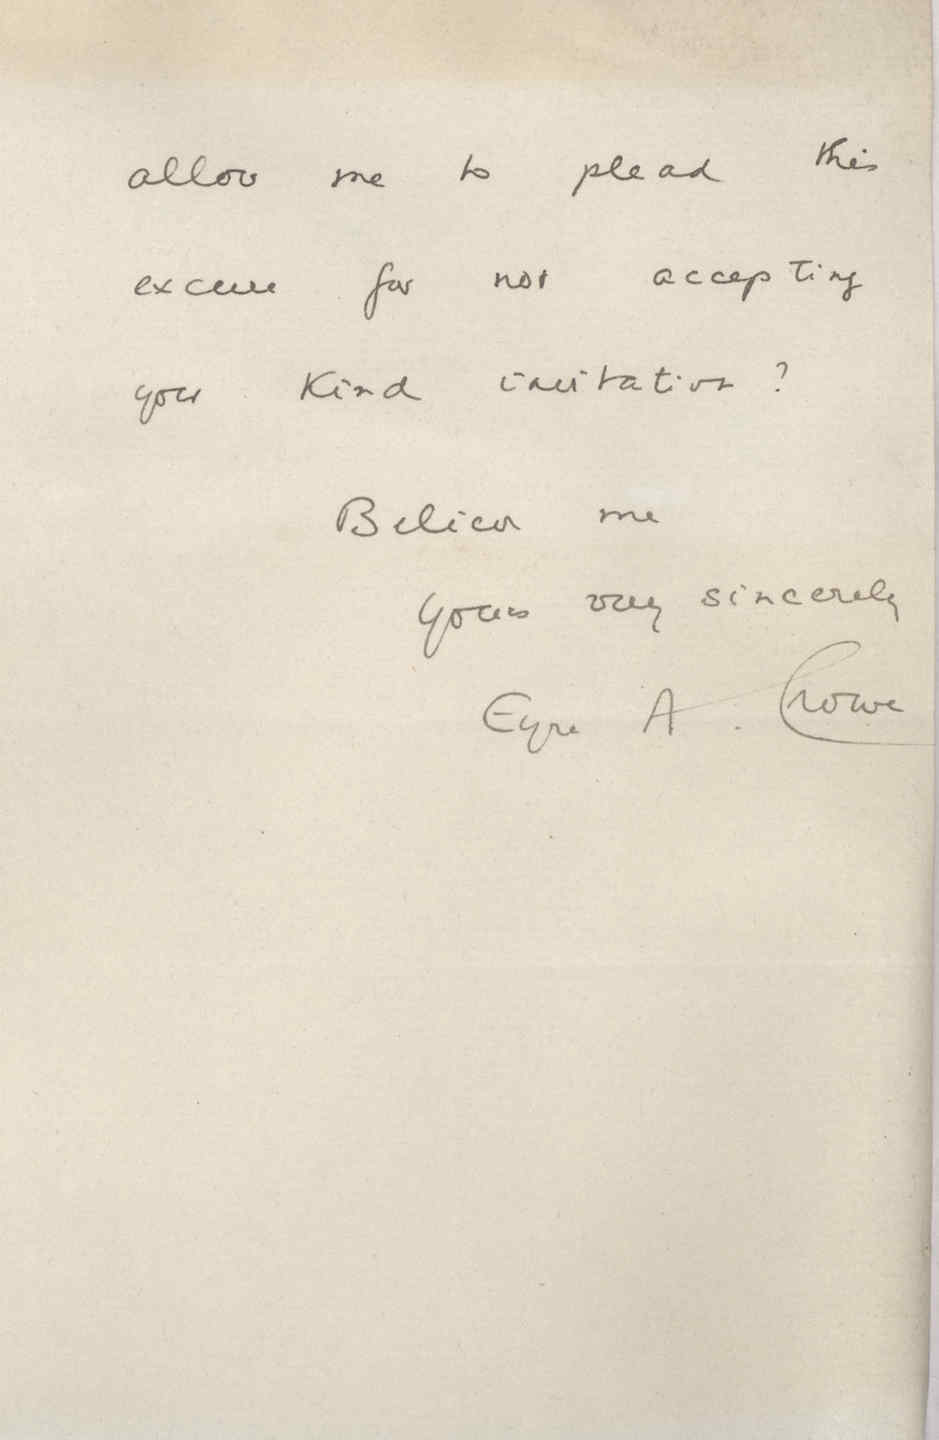 allow me to plead this
excuse for not accepting
your kind invitation?
Believe me
Yours very sincerely
Eyre A. Crowe